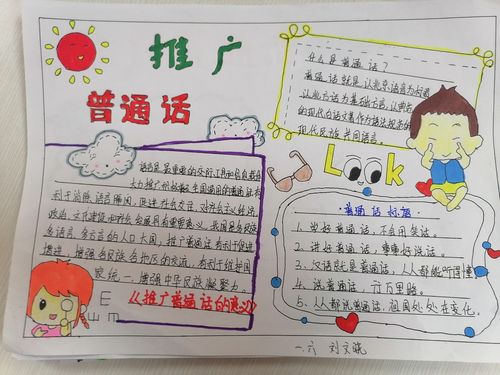 推广
普通话
什么是普通话？
普通话就是以北京语言为标准
以北方话为基础方言，以典范
的现代白话文著作为语法规范的
现代民族共同语言。
Look
语言是最重要的交际工具和信息载体
大力推广
全国通用的普通话有
利于消除语言隔阂，促进社会交往，对社会主义经济
政治、文化建设和社会发展具有重要意义。我国是多民族
多语言、多方言的人口大国，推广普通话有利于促进
增进
各民族各地区的交流，有利于维护国
家统一，增强中华民族凝聚力。
《推广普通话的意义》
E
山 m
普通话标语
1、当好普通话，不会用笑话。
2、讲好普通话，事事好说话。
3、汉语就是普通话，人人都能听得懂
4、说普通话，行万里路。
5、人人都说普通话，祖国处处在变化。
一.六 刘文晓